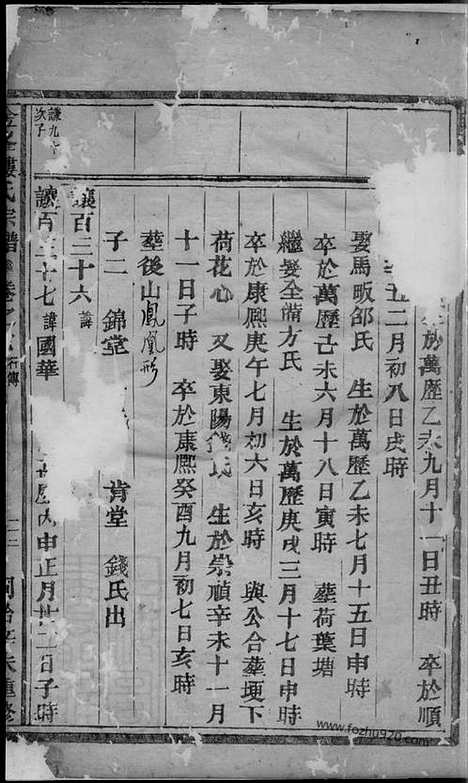 生於萬歷乙未九月十一日丑時 卒於順
五二月初八日戌時
娶馬畈郤氏 生於萬歷乙未七月十五日申時
卒於萬歷己未六月十八日寅時 塟荷葉塘
繼娶全備方氏 生於萬歷庚戌三月十七日申時
卒於康熙庚午七月初六日亥時 與公合塟埂下
荷花心 又娶東陽錢氏 生於崇禎辛未十一月
十一日子時 卒於康熙癸酉九月初七日亥時
塟後山鳳凰形
子二 錦堂 肯堂 錢氏出
讓百三十六 諱
謙九
次子
讓百三十七 諱國華 萬歷丙申正月廿二日子時
樓氏宗譜 卷 行傳 同治辛未重修
www.fozhu920.com